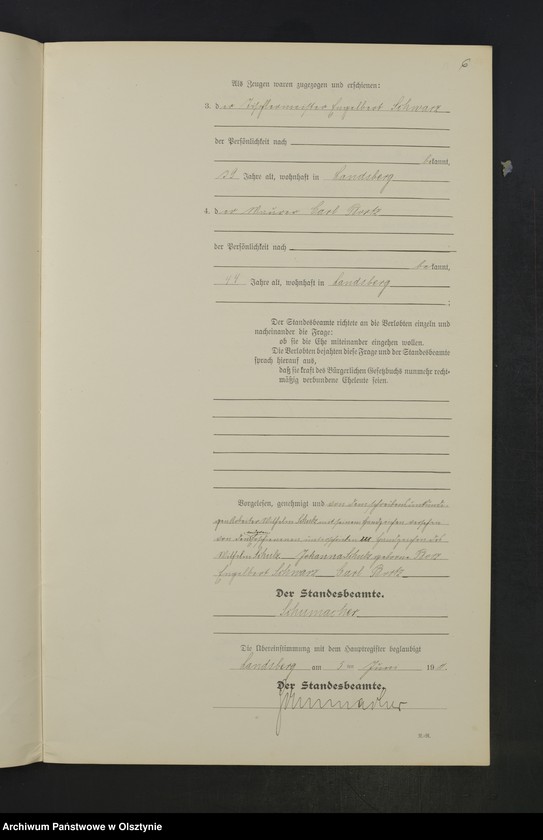 6
Als Zeugen waren zugezogen und erschienen:
3. der Töpfermeister Engelbert Schwarz
der Persönlichkeit nach
bekannt,
Jahre alt, wohnhaft in Landsberg
4. der Maurer Carl
der Persönlichkeit nach
bekannt,
Jahre alt, wohnhaft in Landsberg
;
Der Standesbeamte richtete an die Verlobten einzeln und
nacheinander die Frage:
ob sie die Ehe miteinander eingehen wollen.
Die Verlobten bejahten diese Frage und der Standesbeamte
sprach hierauf aus,
daß sie kraft des Bürgerlichen Gesetzbuchs nunmehr recht-
mäßig verbundene Eheleute seien.
Vorgelesen, genehmigt und von dem schreibensunkundi-
gen Arbeiter Wilhelm Schulz mit seinen Handzeichen versehen
von den Erschienenen unterschrieben Handzeichen des
Wilhelm Schulz Johanna Schulz geborene
Engelbert Schwarz Carl
Der Standesbeamte.
Schumacher
Die Übereinstimmung mit dem Hauptregister beglaubigt
Landsberg am Juni 19
Der Standesbeamte.
Schumacher
Archiwum Państwowe w Olsztynie